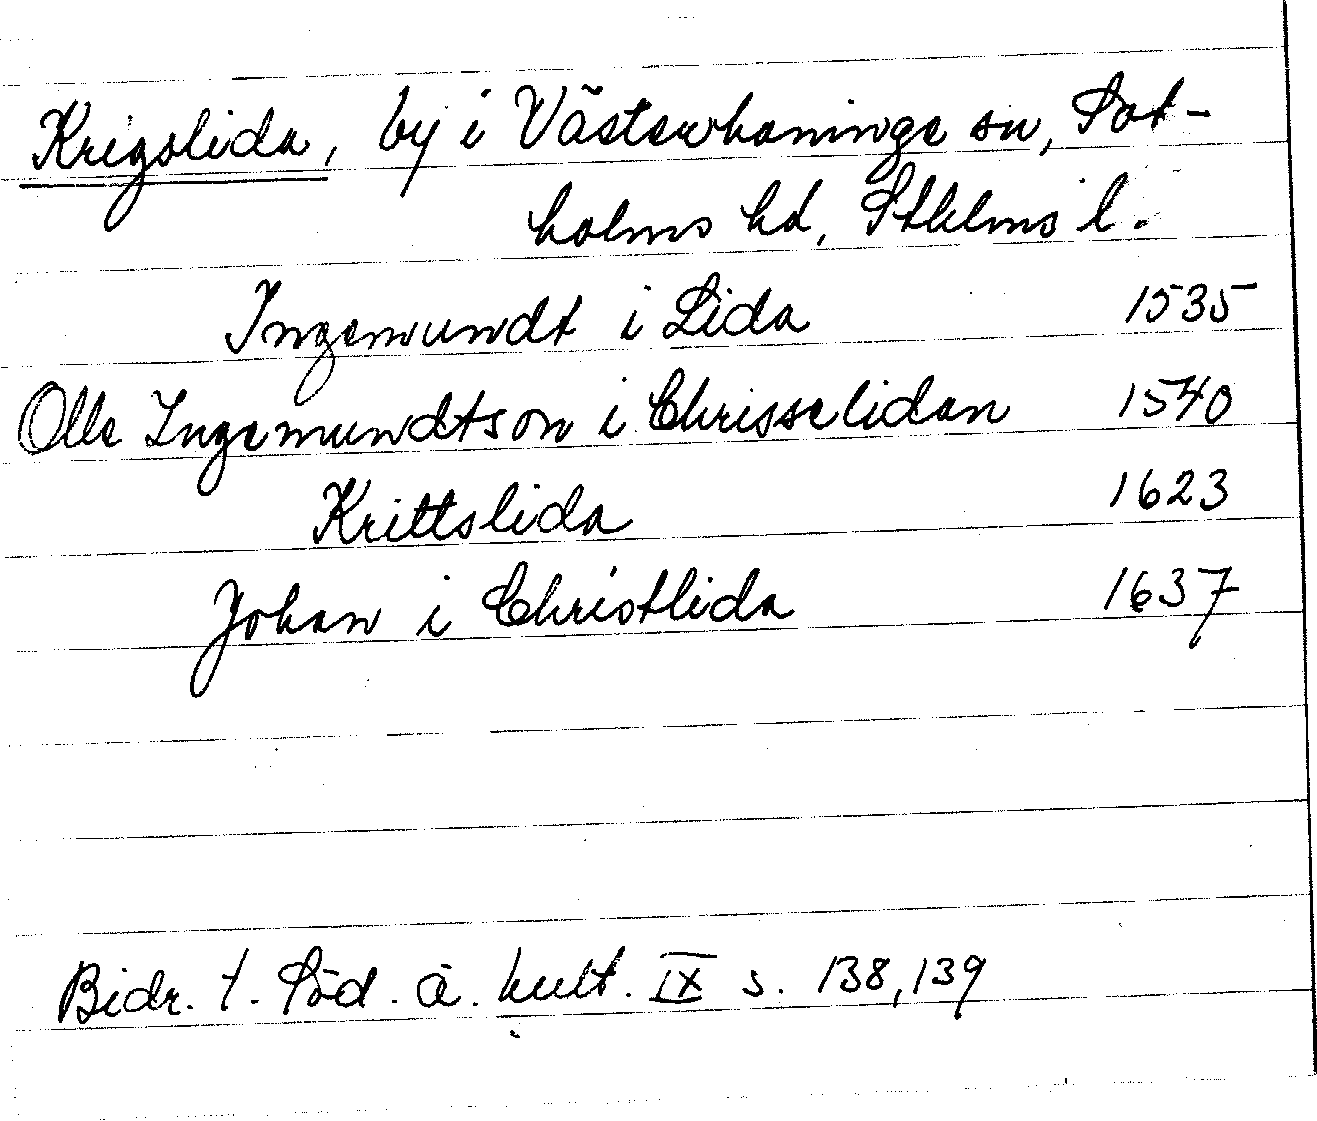 Krigslida, by i Västerhaninge sn, Sot-
holms hd, Sthlms l.
Ingemundt i Lida 1535
Olle Ingemundtson i Chrisselidan 1540
Krittslida 1623
Johan i Christlida 1637
Bidr. t. Söd. ä. kult. IX s. 138, 139